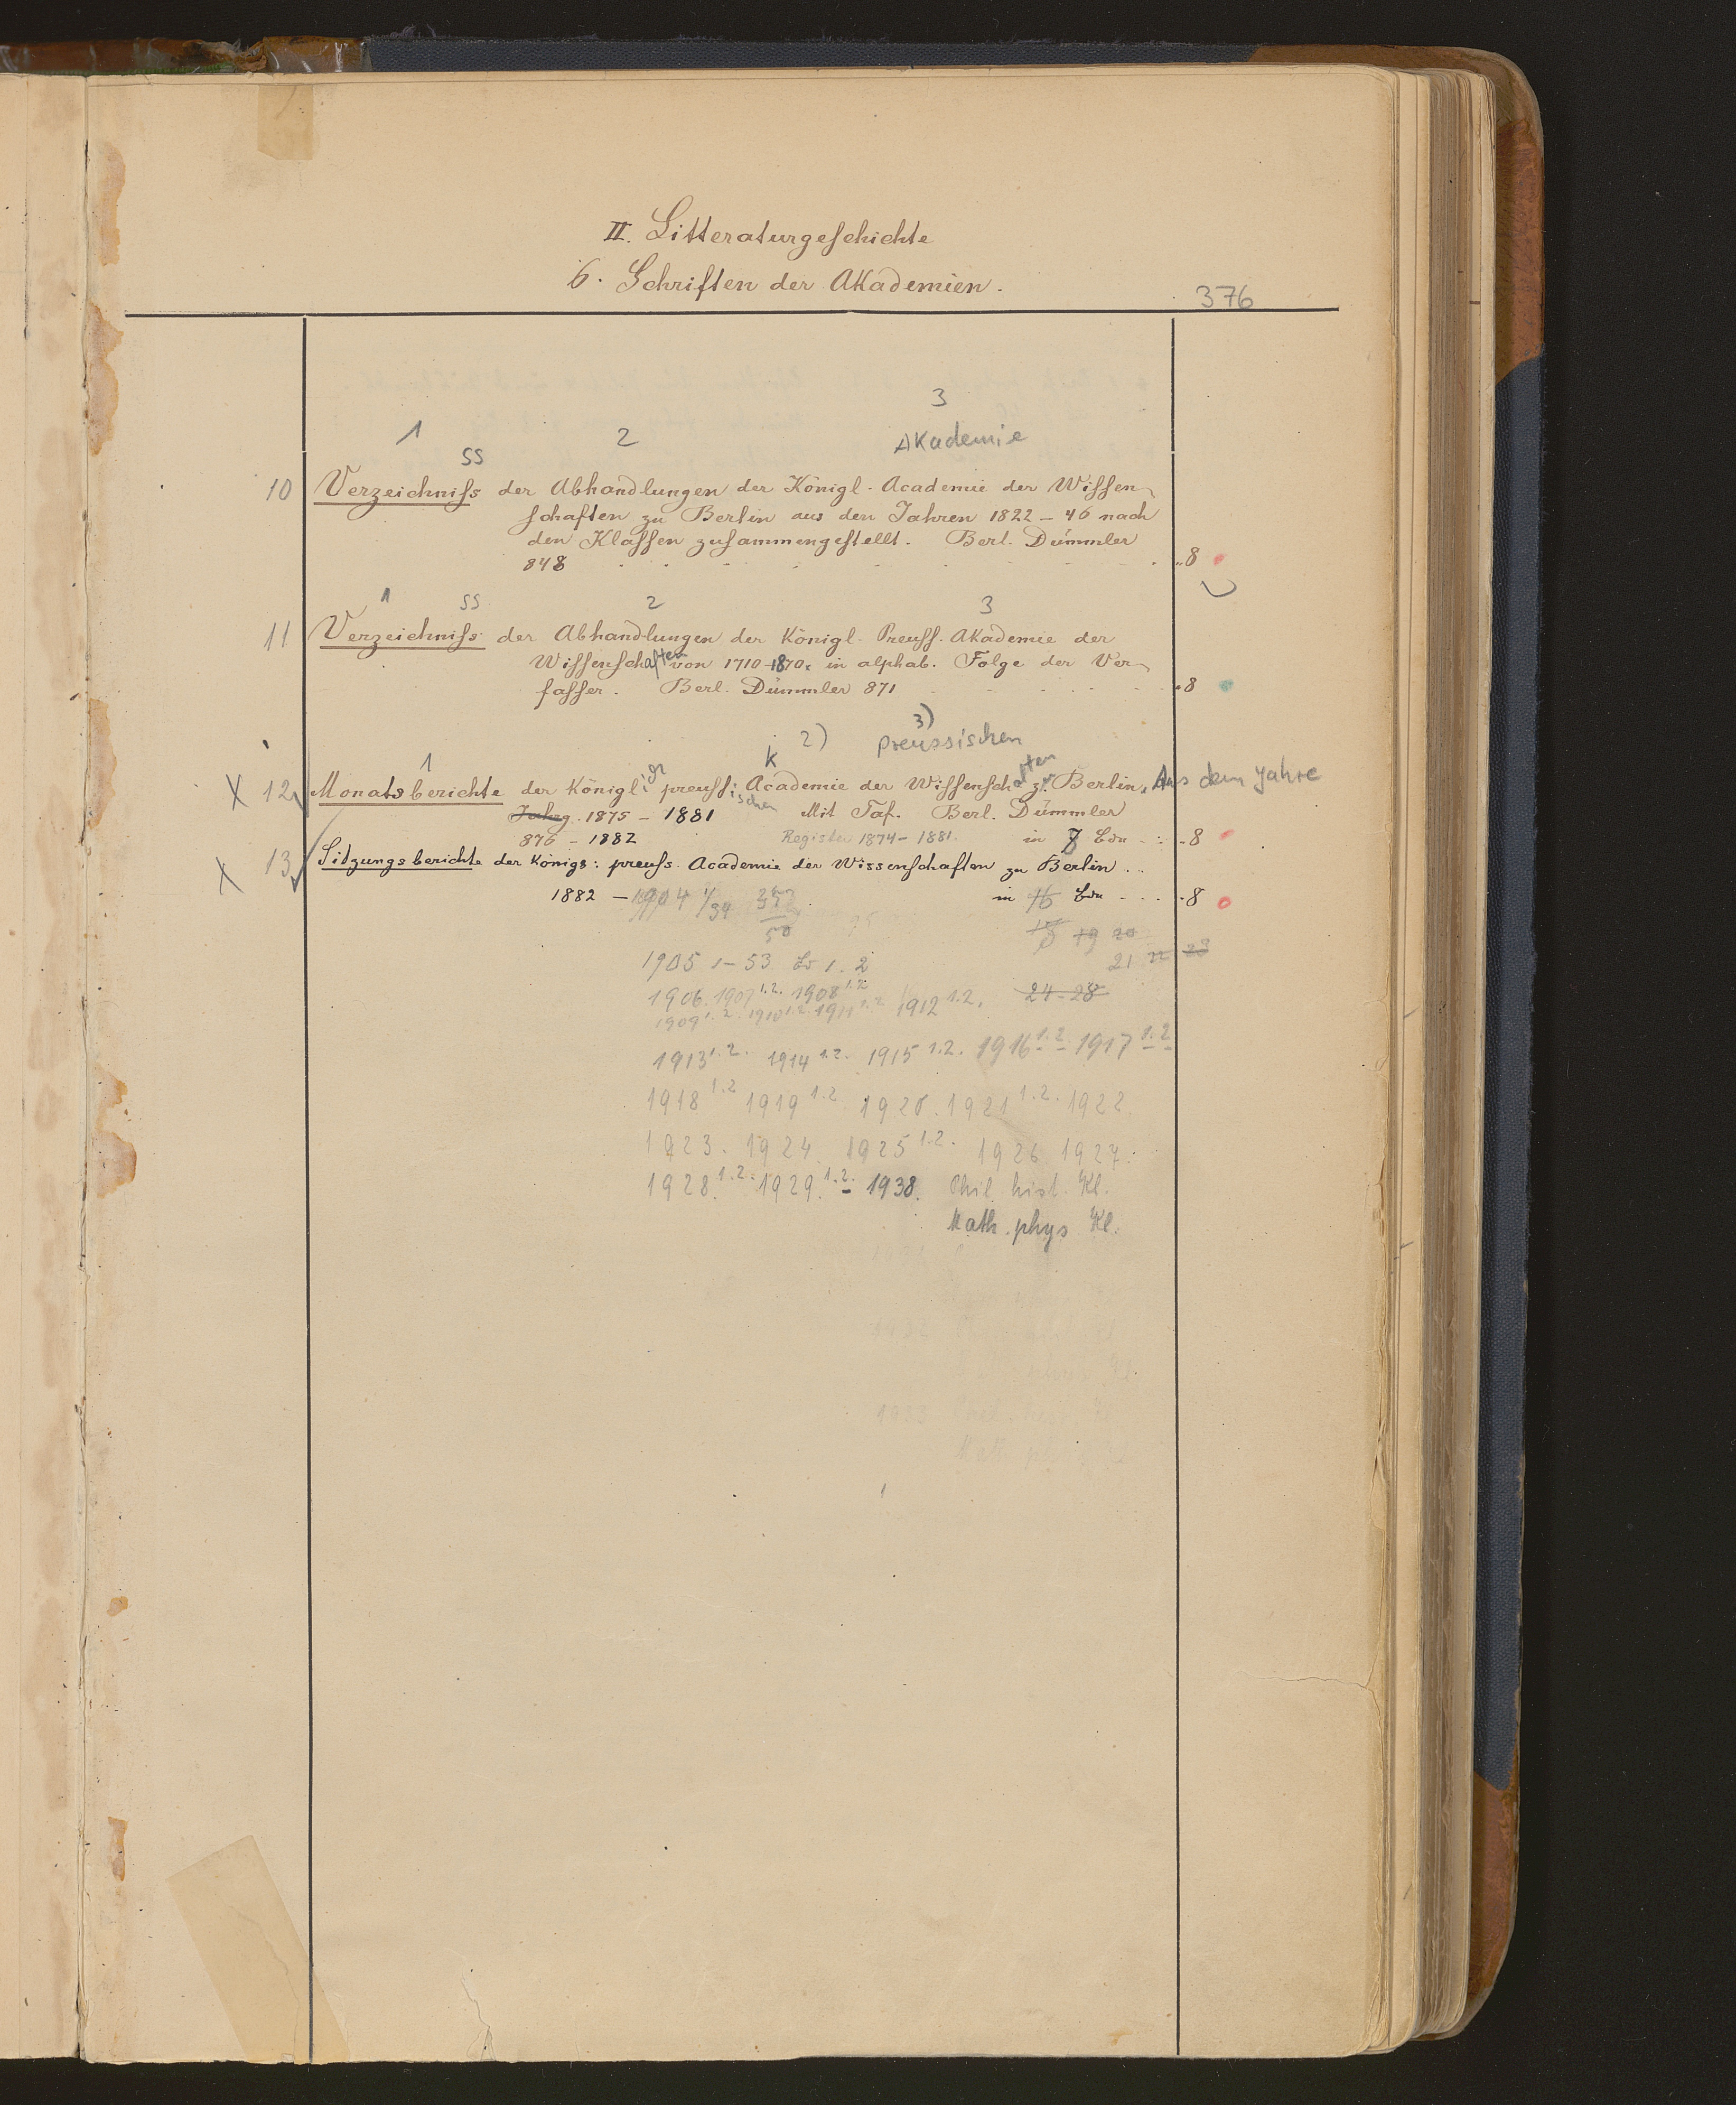 II. Litteraturgeſchichte
6. Schriften der Akademien.
376
3
1 2 Akademie
ss
10 Verzeichniſs der Abhandlungen der Königl. Academie der Wiſſen-
ſchaften zu Berlin aus den Jahren 1822 – 46 nach
den Klaſſen zuſammengeſtellt. Berl. Dümmler
848 . . . . . . . . „8
1 ss 2 3
11 Verzeichniſs der Abhandlungen der Königl. Preuſſ. Akademie der
Wiſſenschaften von 1710–1870. in alphab. Folge der Ver-
faſſer. Berl. Dümmler 871 . . . . . „8
3)
1 k 2) preussischen
X 12 Monatsberichte der Königl: gr preuſſ:ischen Academie der Wiſſenschaften z. Berlin. Aus dem Jahre
Jahrg. 1875 – 1881 Mit Taf. Berl. Dümmler
876 – 1882 Register 1874 – 1881. in 7 Bdn . . „8
X 13 Sitzungsberichte der Königs: preuſs. Academie der Wissenſchaften zu Berlin . .
1882 – 1904 1/34 in 16 Bdn . . . . „8
50 18 19 20
1905 1–53 Bd 1. 2 21 22 23
1906. 1907 1.2. 1908 1.2 24–28
1909 1.2. 1910 1.2. 1911 1.2 1912 1.2.
1913 1.2. 1914 1.2. 1915 1.2. 1916 1.2. 1917 1.2
1918 1.2 1919 1.2 1920. 1921 1.2. 1922.
1923. 1924. 1925 1.2. 1926 1927.
1928. 1.2. 1929. 1.2. 1938. Phil. hist. Kl.
Math. phys Kl.
1933 Phil. hist. Kl
Math. phys